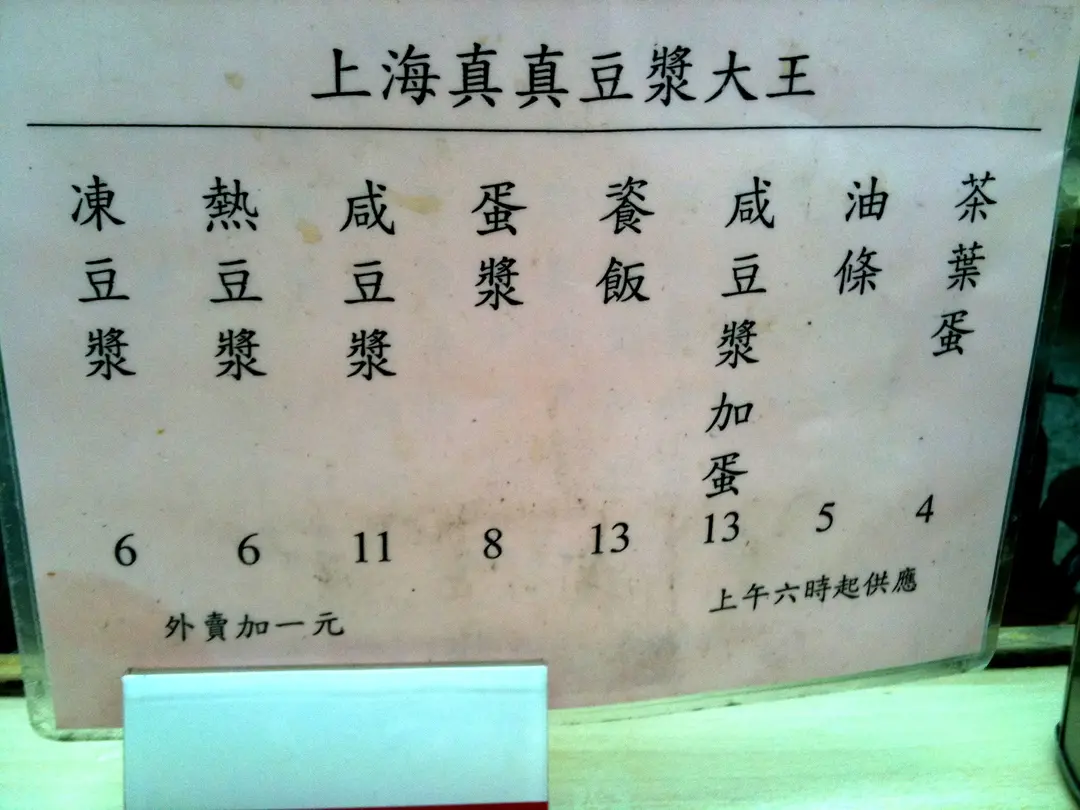 上海真真豆漿大王
茶葉蛋
4
油條
5
咸豆漿加蛋
13
餈飯
13
蛋漿
8
咸豆漿
11
熱豆漿
6
凍豆漿
6
上午六時起供應
外賣加一元